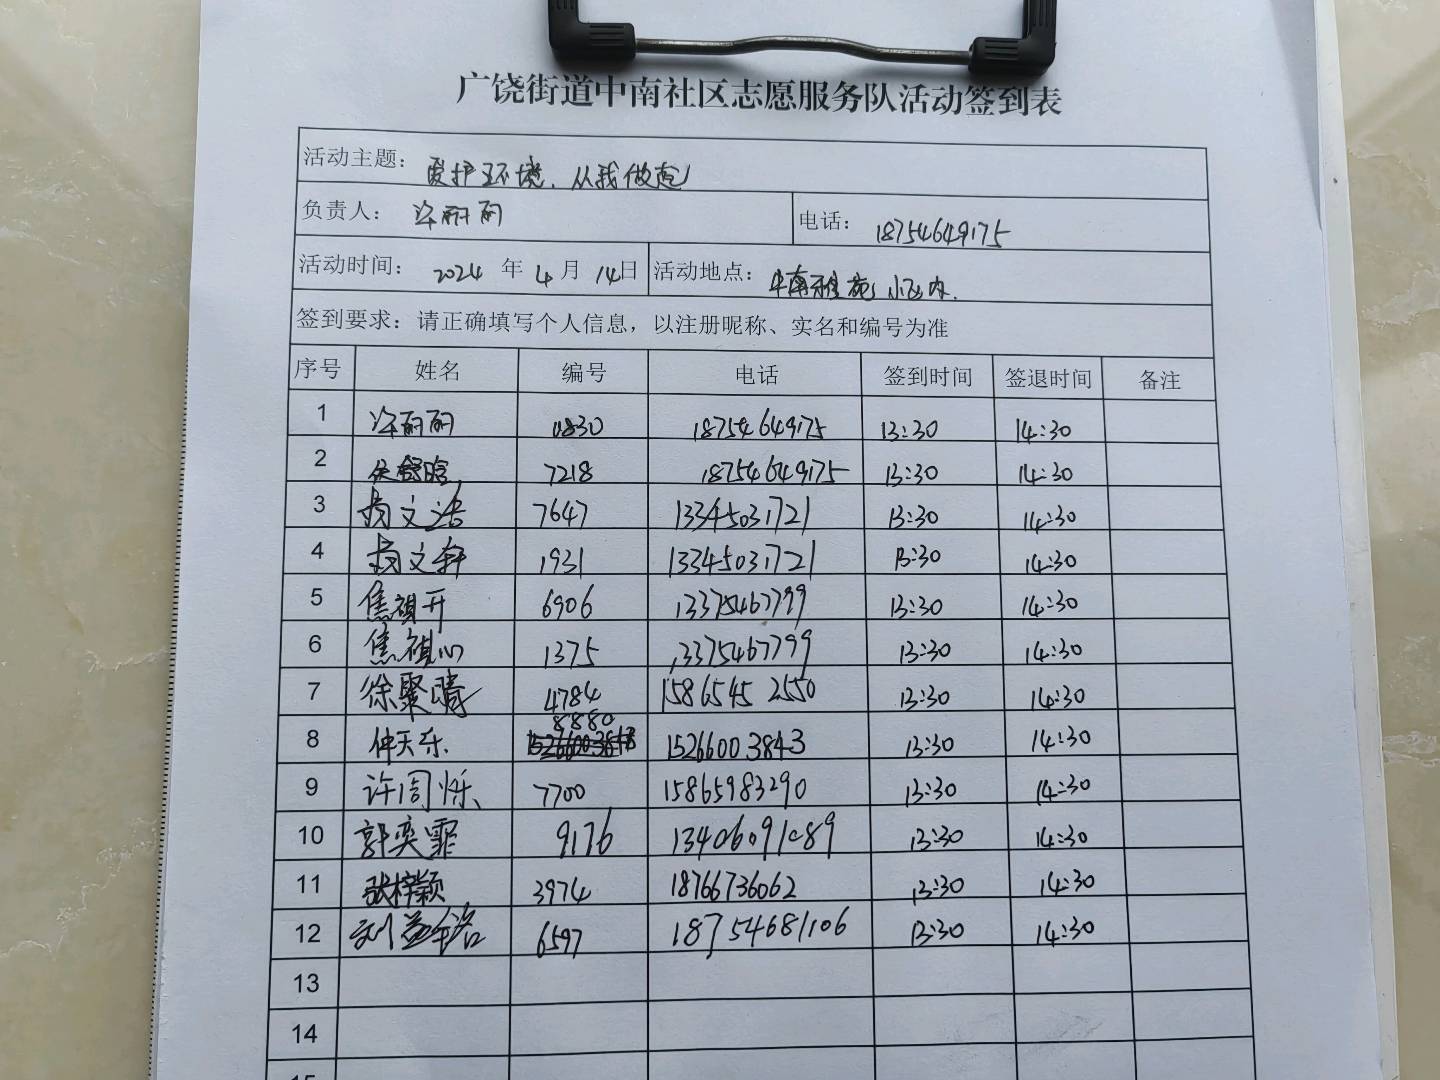 广饶街道中南社区志愿服务队活动签到表
活动主题： 爱护环境，从我做起
负责人： 许丽丽 电话： 18754649175
活动时间： 2024 年 4 月 14日 活动地点： 中南雅苑小区内.
签到要求：请正确填写个人信息，以注册昵称、实名和编号为准
序号 姓名 编号 电话 签到时间 签退时间 备注
1 许丽丽 0830 18754649175 13:30 14:30
2 7218 18754649175 13:30 14:30
3 杨文浩 7647 13345031721 13:30 14:30
4 杨文轩 1931 13345031721 13:30 14:30
5 焦祺开 6906 13375467799 13:30 14:30
6 焦祺心 1375 13375467799 13:30 14:30
7 徐聚晴 4784 15865452550 13:30 14:30
8 仲天乐 8880 15266003843 13:30 14:30
9 许周烁 7700 15865983290 13:30 14:30
10 郭奕霏 9176 13406091089 13:30 14:30
11 张梓颖 3974 18766736062 13:30 14:30
12 刘益铭 6597 18754681106 13:30 14:30
13
14